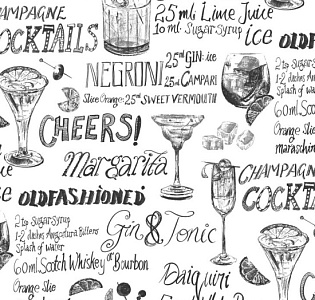 CHAMPAGNE
COCKTAILS
25ml Lime Juice
10 ml Sugar Syrup
ice
OLDF
NEGRONI
25ml GIN ice
25ml CAMPARI
Slice Orange 25ml SWEET VERMOUTH
2 tsp Sugar Syr
1-2 dashes Angostura
Splash of water
60ml Scot
Orange slice
maraschin
CHEERS!
Margarita
CHAMPAGN
COCKT
ice
OLDFASHIONED
2 tsp Sugar Syrup
1-2 dashes Angostura Bitters
Splash of water
60ml Scotch Whiskey or Bourbon
Orange slice
Gin & Tonic
Daiquiri